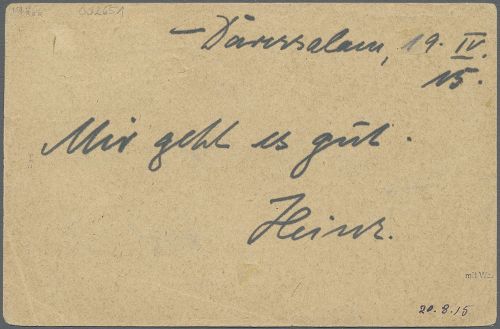 002651
— Daressalam, 19. IV.
15.
Mir geht es gut.
Heinz.
20.8.15